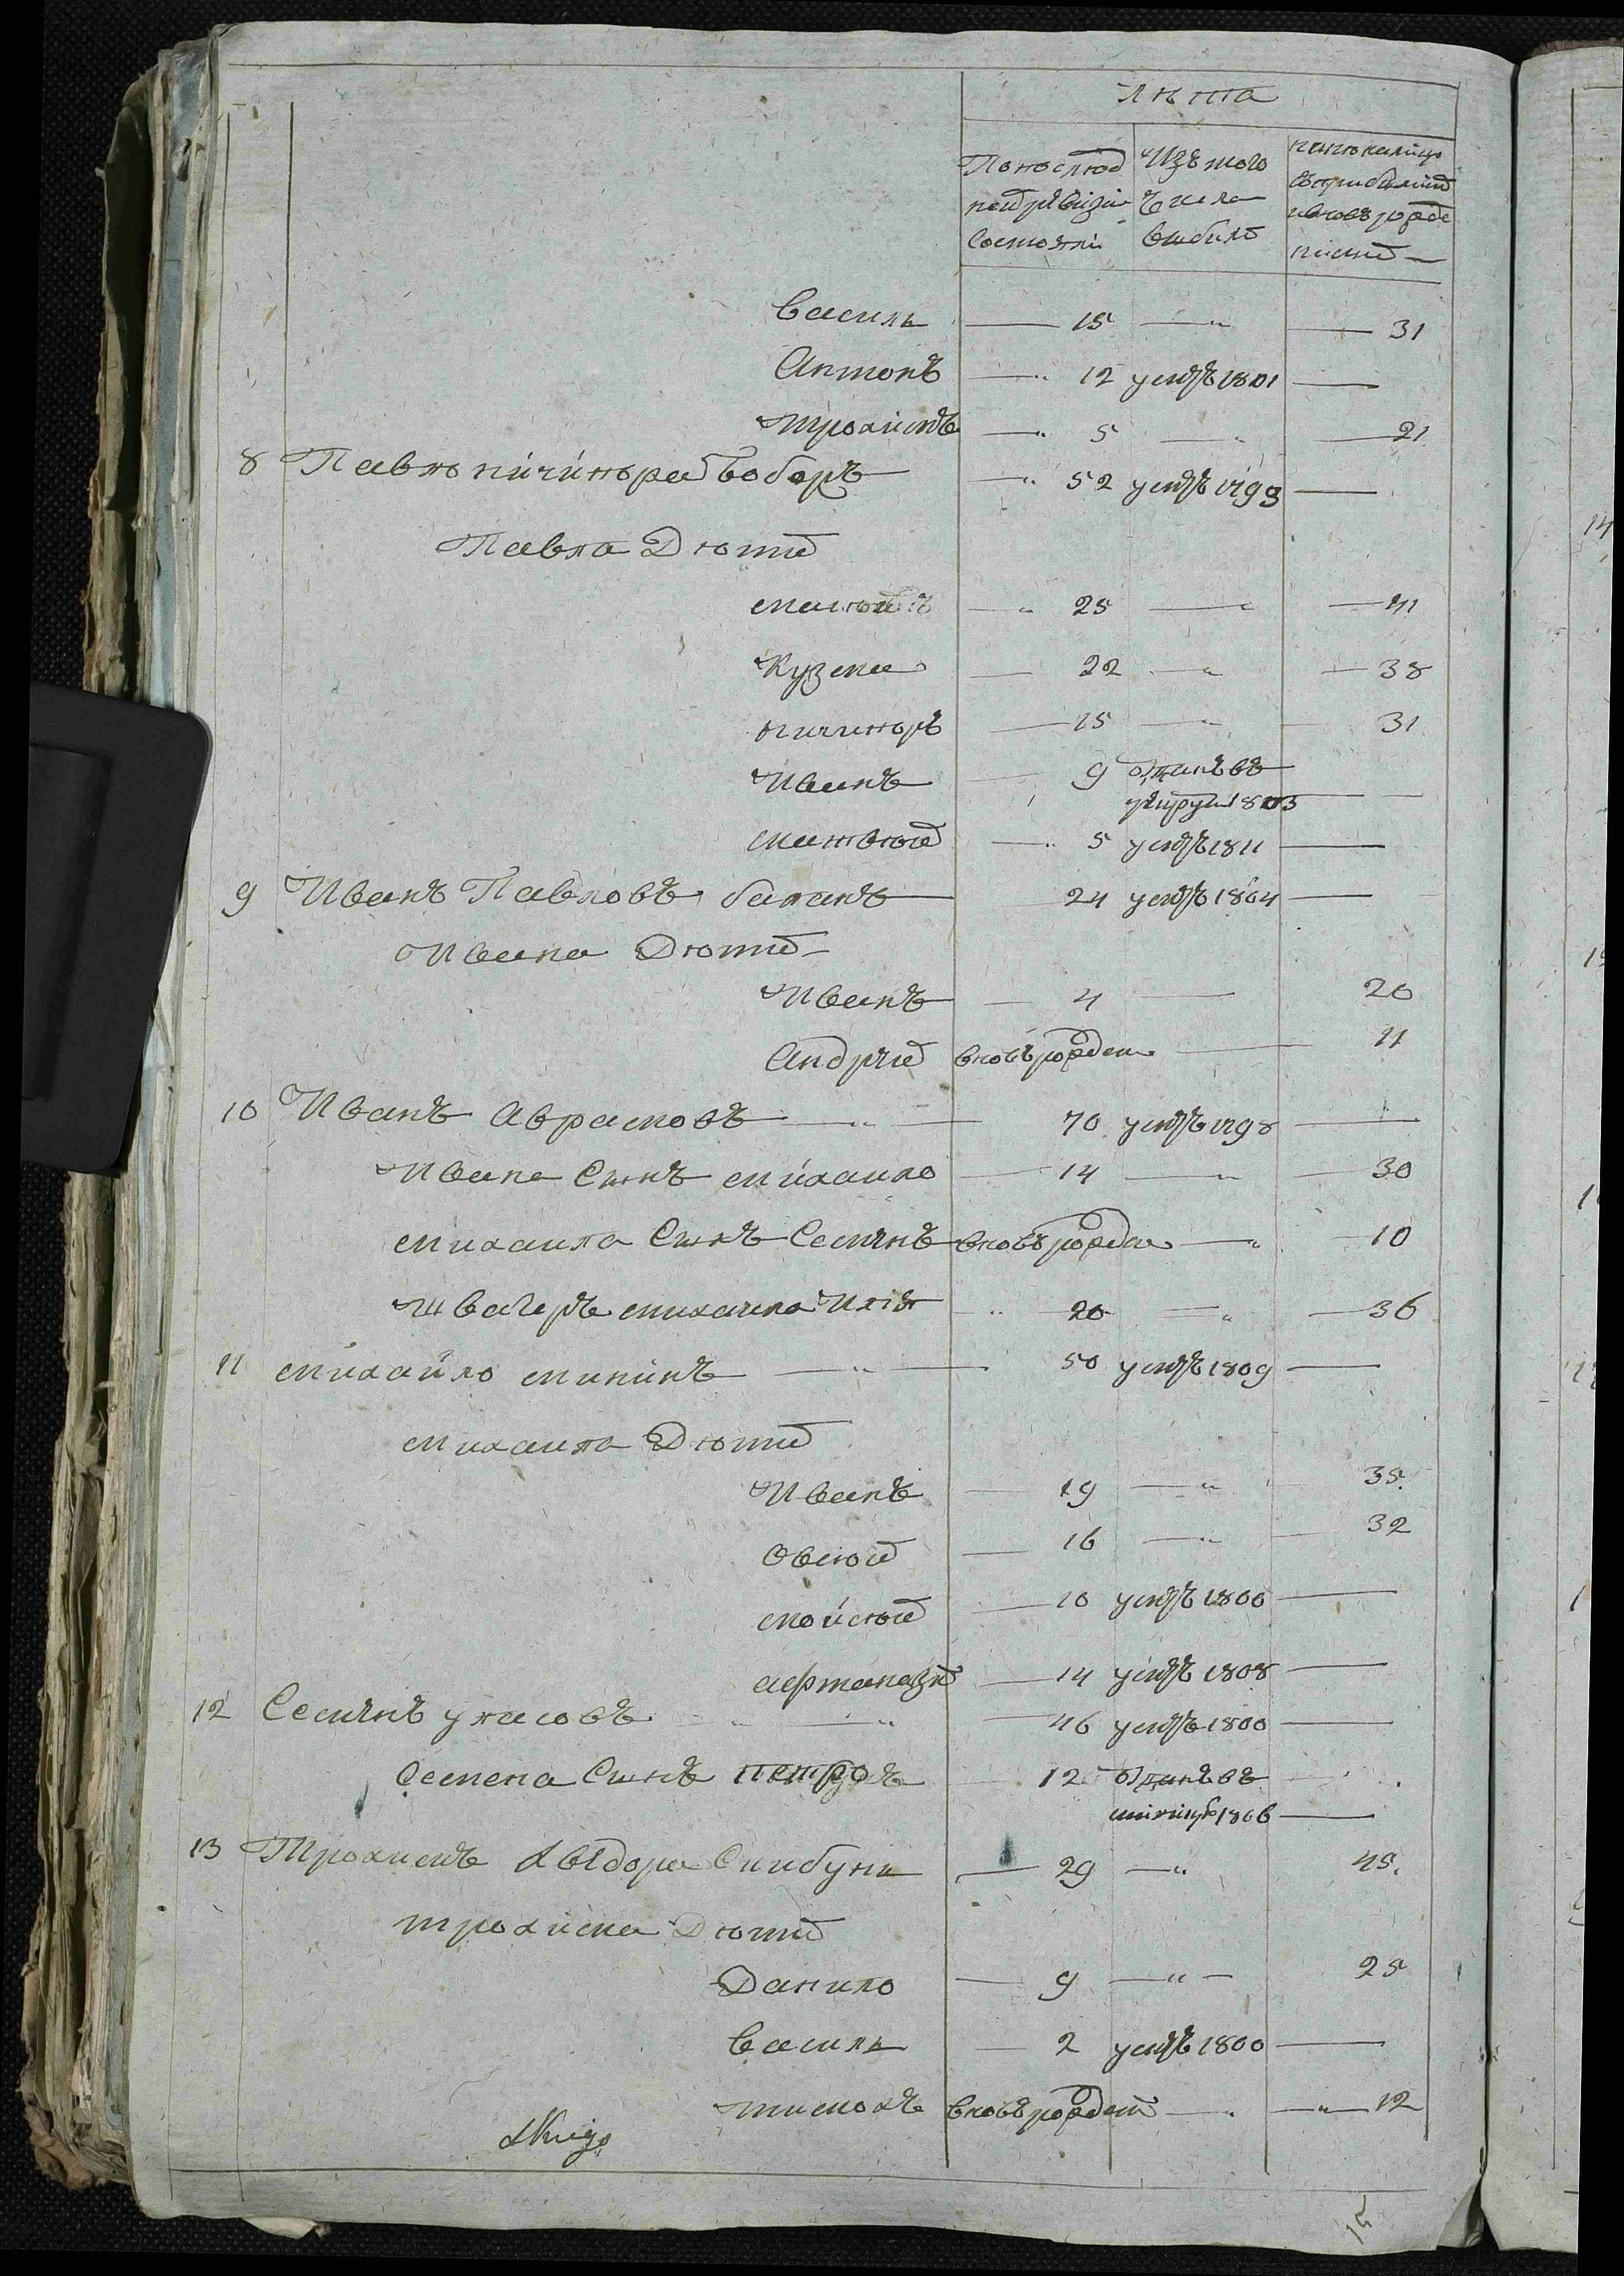 Лѣта
По послѣд
ней ревизіи
состояли
Изъ того
числа
выбыло
ныне налицо
съ прибылми
и вновь рожде
ними
Василь 15 31
Антонъ 12 умѣръ 1801
Трохимъ 5 21
8 Павлъ Боборъ 52 умѣръ 1799
Павла Дѣти
25 41
Кузма 22 38
Ничипоръ 15 31
Иванъ 9 Отданъ въ
рекруты 1803
Матвѣй 5 умѣръ 1811
9 Иванъ Павловъ баланъ 24 умѣръ 1804
Ивана Дѣти
Иванъ 4 20
Андрей вновь рожден 11
10 Иванъ Аврамовъ 70 умѣръ 1798
Ивана Сынъ михайло 14 30
михаила Сынъ Семенъ вновь рожден 10
Швагеръ михаила Илія 20 36
11 михайло мининъ 50 умѣръ 1809
михаила Дѣти
Иванъ 19 35
Овсѣй 16 32
мойсѣй 10 умѣръ 1800
афтаназій 14 умѣръ 1808
12 Семенъ уласовъ 46 умѣръ 1800
Семена Сынъ петро 12 Отданъ въ
милицию 1806
13 Трохимъ 29 45
трохима Дѣти
Данило 9 25
Василь 2 умѣръ 1800
тимохъ вновь рожден 12
15